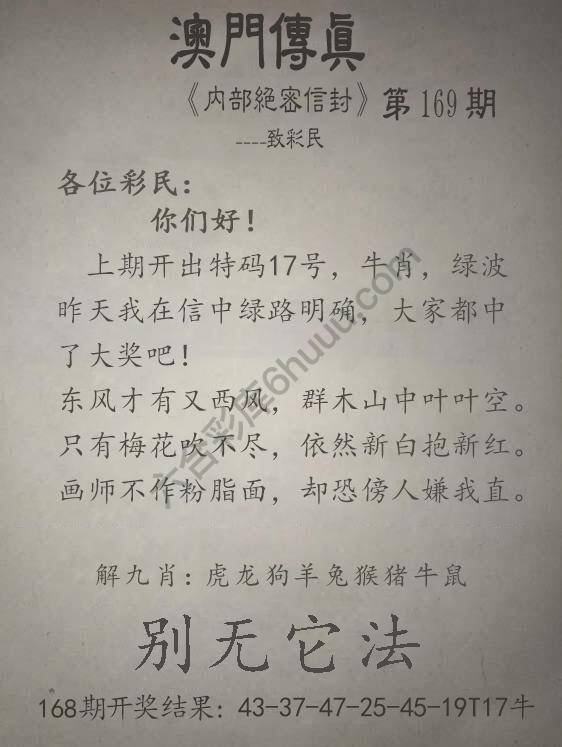 澳門傳眞
《内部絕密信封》第169期
----致彩民
各位彩民：
你们好！
上期开出特码17号，牛肖，绿波
昨天我在信中绿路明确，大家都中
了大奖吧！
东风才有又西风，群木山中叶叶空。
只有梅花吹不尽，依然新白抱新红。
画师不作粉脂面，却恐傍人嫌我直。
六合彩库6huuu.com
解九肖：虎龙狗羊兔猴猪牛鼠
别无它法
168期开奖结果：43-37-47-25-45-19T17牛